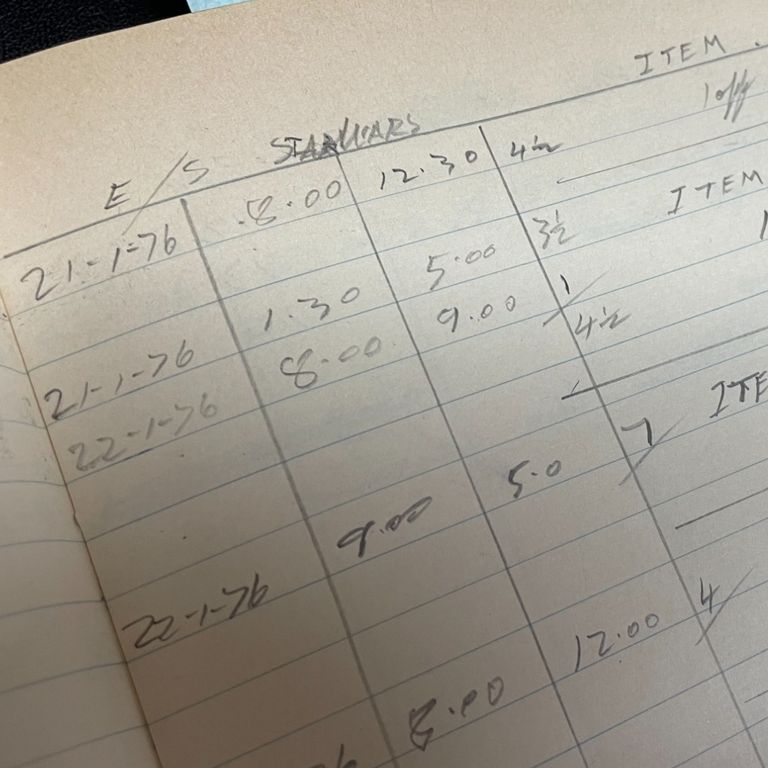 E/S STARWARS ITEM
1 off
21-1-76 8.00 12.30 4½
ITEM
21-1-76 1.30 5.00 3½
22-1-76 8.00 9.00 1
4½
ITE
22-1-76 9.00 5.0 7
8.00 12.00 4